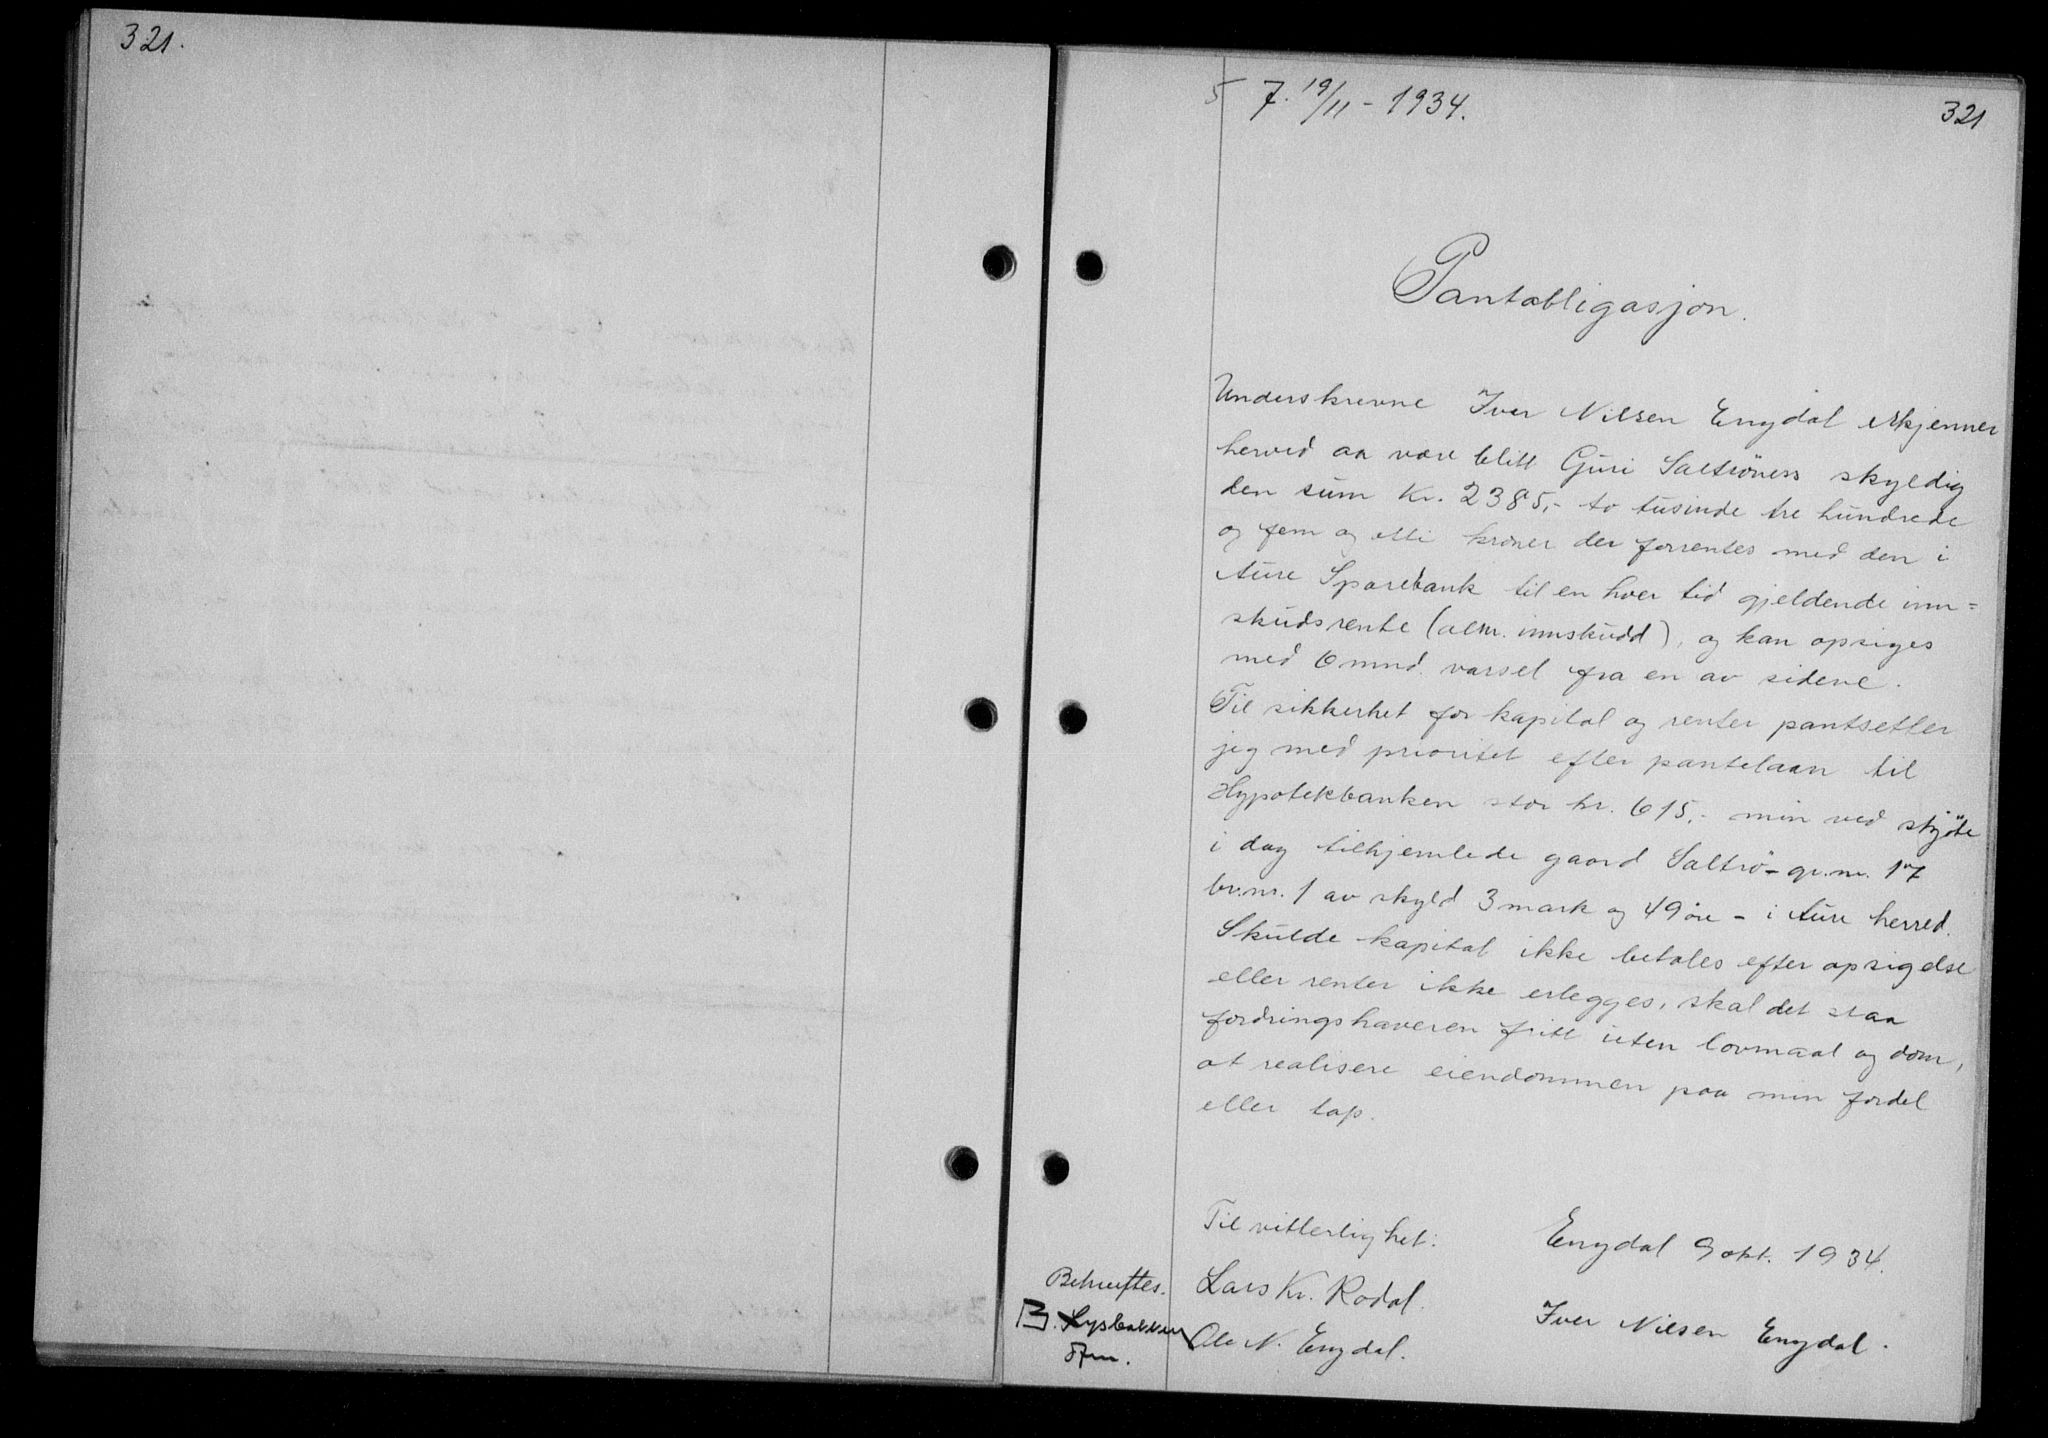 321.
5 7. 19/11 - 1934.
321
Pantobligasjon.
Underskrevne Iver Nilsen Engdal erkjenner
herved aa være blitt Guri Saltröners skyldig
den sum kr. 2385,- to tusinde tre hundrede
og fem og otti kroner der forrentes med den i
Aure Sparebank til en hver tid gjeldende inn=
skudsrente (alm. innskudd), og kan opsiges
med 6 mnd. varsel fra en av sidene.
Til sikkerhet for kapital og renter pantsetter
jeg med prioritet efter pantelaan til
Hypotekbanken stor kr. 615,- min ved skjöte
i dag tilhjemlede gaard Saltrö - gr.nr. 17
br.nr. 1 av skyld 3 mark og 49 öre - i Aure herred.
Skulde kapital ikke betales efter opsigelse
eller renter ikke erlegges, skal det staa
fordringshaveren fritt uten lovmaal og dom,
at realisere eiendommen paa min fordel
eller tap.
Til vitterlighet:
Engdal 9 okt. 1934.
Lars Kr. Rodal.
Iver Nilsen Engdal.
Ole N. Engdal.
Bekreftes.
B. Lysbakken